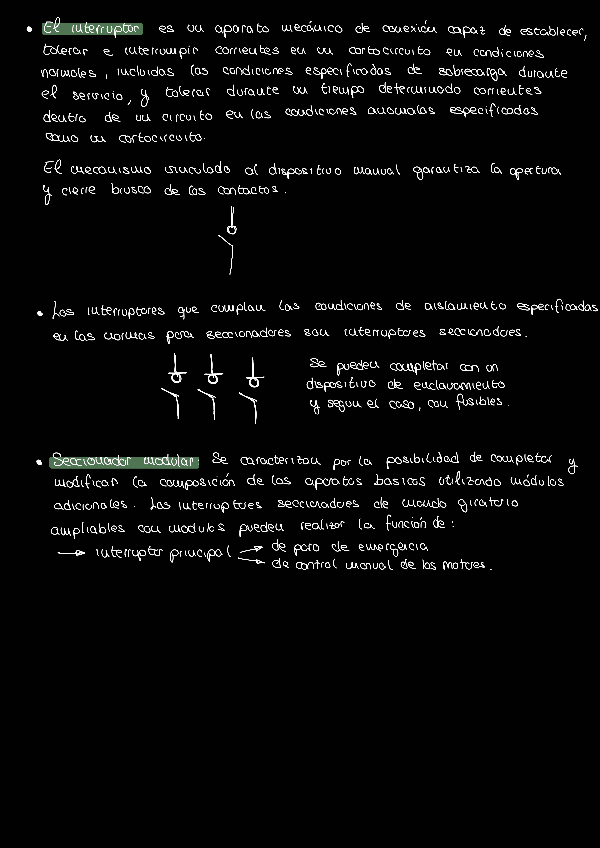 • El interruptor es un aparato mecánico de conexión capaz de establecer,
tolerar e interrumpir corrientes en un cortocircuito en condiciones
normales, incluidas las condiciones especificadas de sobrecarga durante
el servicio, y tolerar durante un tiempo determinado corrientes
dentro de un circuito en las condiciones anómalas especificadas
como un cortocircuito.
El mecanismo vinculado al dispositivo manual garantiza la apertura
y cierre brusco de los contactos.
• Los interruptores que cumplan las condiciones de aislamiento especificadas
en las normas para seccionadores son interruptores seccionadores.
Se pueden completar con un
dispositivo de enclavamiento
y segun el caso, con fusibles.
• Seccionador modular: Se caracterizan por la posibilidad de completar y
modificar la composición de los aparatos basicos utilizando módulos
adicionales. Los interruptores seccionadores de mando giratorio
ampliables con modulos pueden realizar la función de:
→ interruptor principal → de paro de emergencia
→ de control manual de los motores.